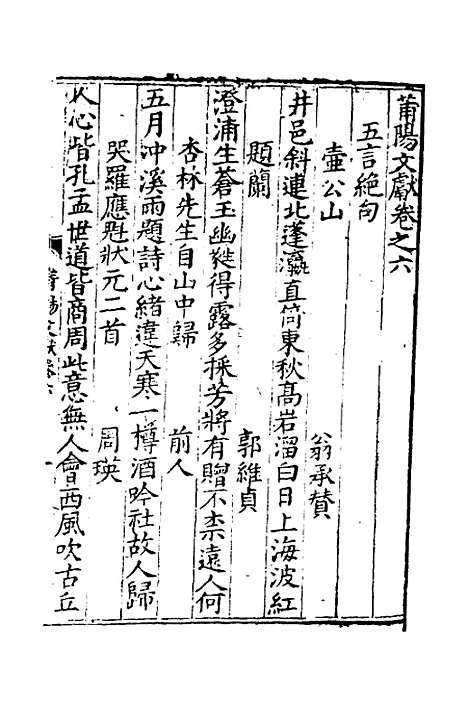 莆陽文獻卷之六
五言絶句
壷公山　翁承賛
井邑斜連北蓬瀛直倚東秋髙岩溜白日上海波紅
題蘭　郭維貞
澄浦生蒼玉幽㽔得露多採芳將有贈不柰遠人何
杏林先生自山中歸　前人
五月冲溪雨題詩心緒違天寒一樽酒吟社故人歸
哭羅應魁狀元二首　周瑛
人心皆孔孟世道皆商周此意無人會西風吹古丘
莆陽文獻卷六
一